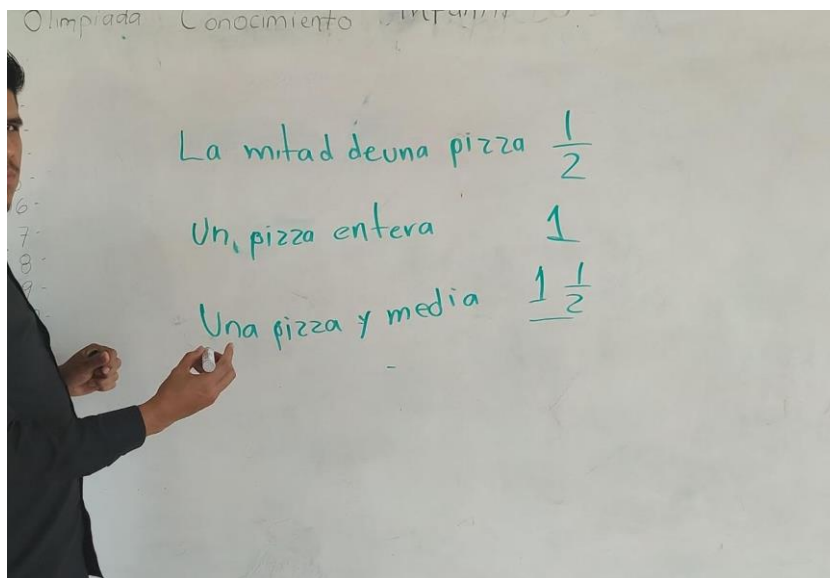 Olimpiada Conocimiento Infantil
6-
7-
8-
9-
La mitad de una pizza 1/2
Un, pizza entera 1
Una pizza y media 1 1/2